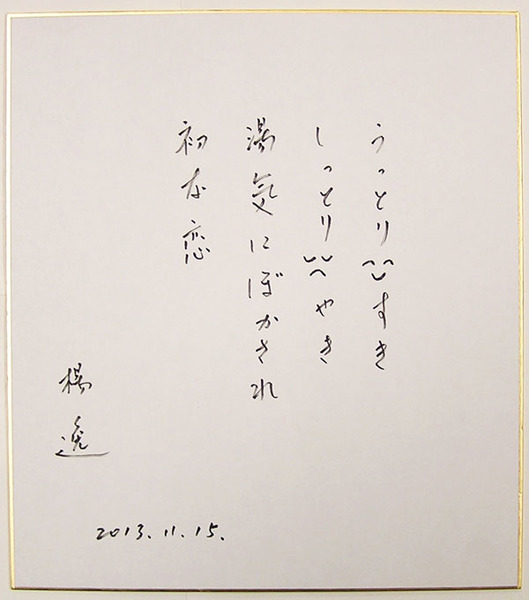 うっとりすき
しっとりやき
湯気にぼかされ
初な恋
楊逸
2013.11.15.